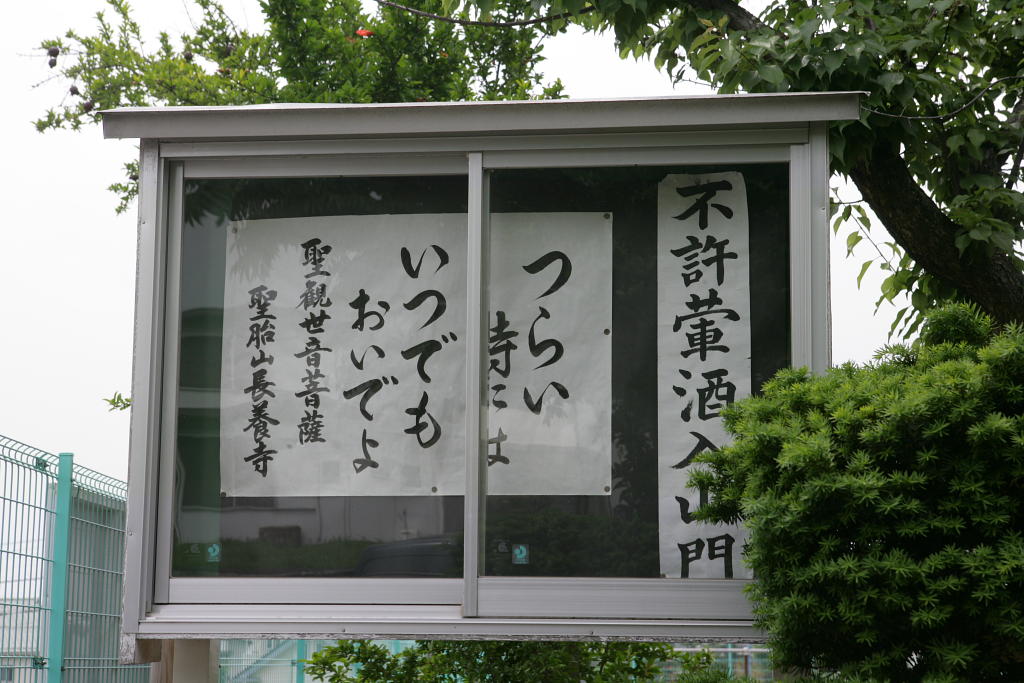 不許葷酒入山門
つらい
時には
いつでも
おいでよ
聖観世音菩薩
聖胎山長養寺